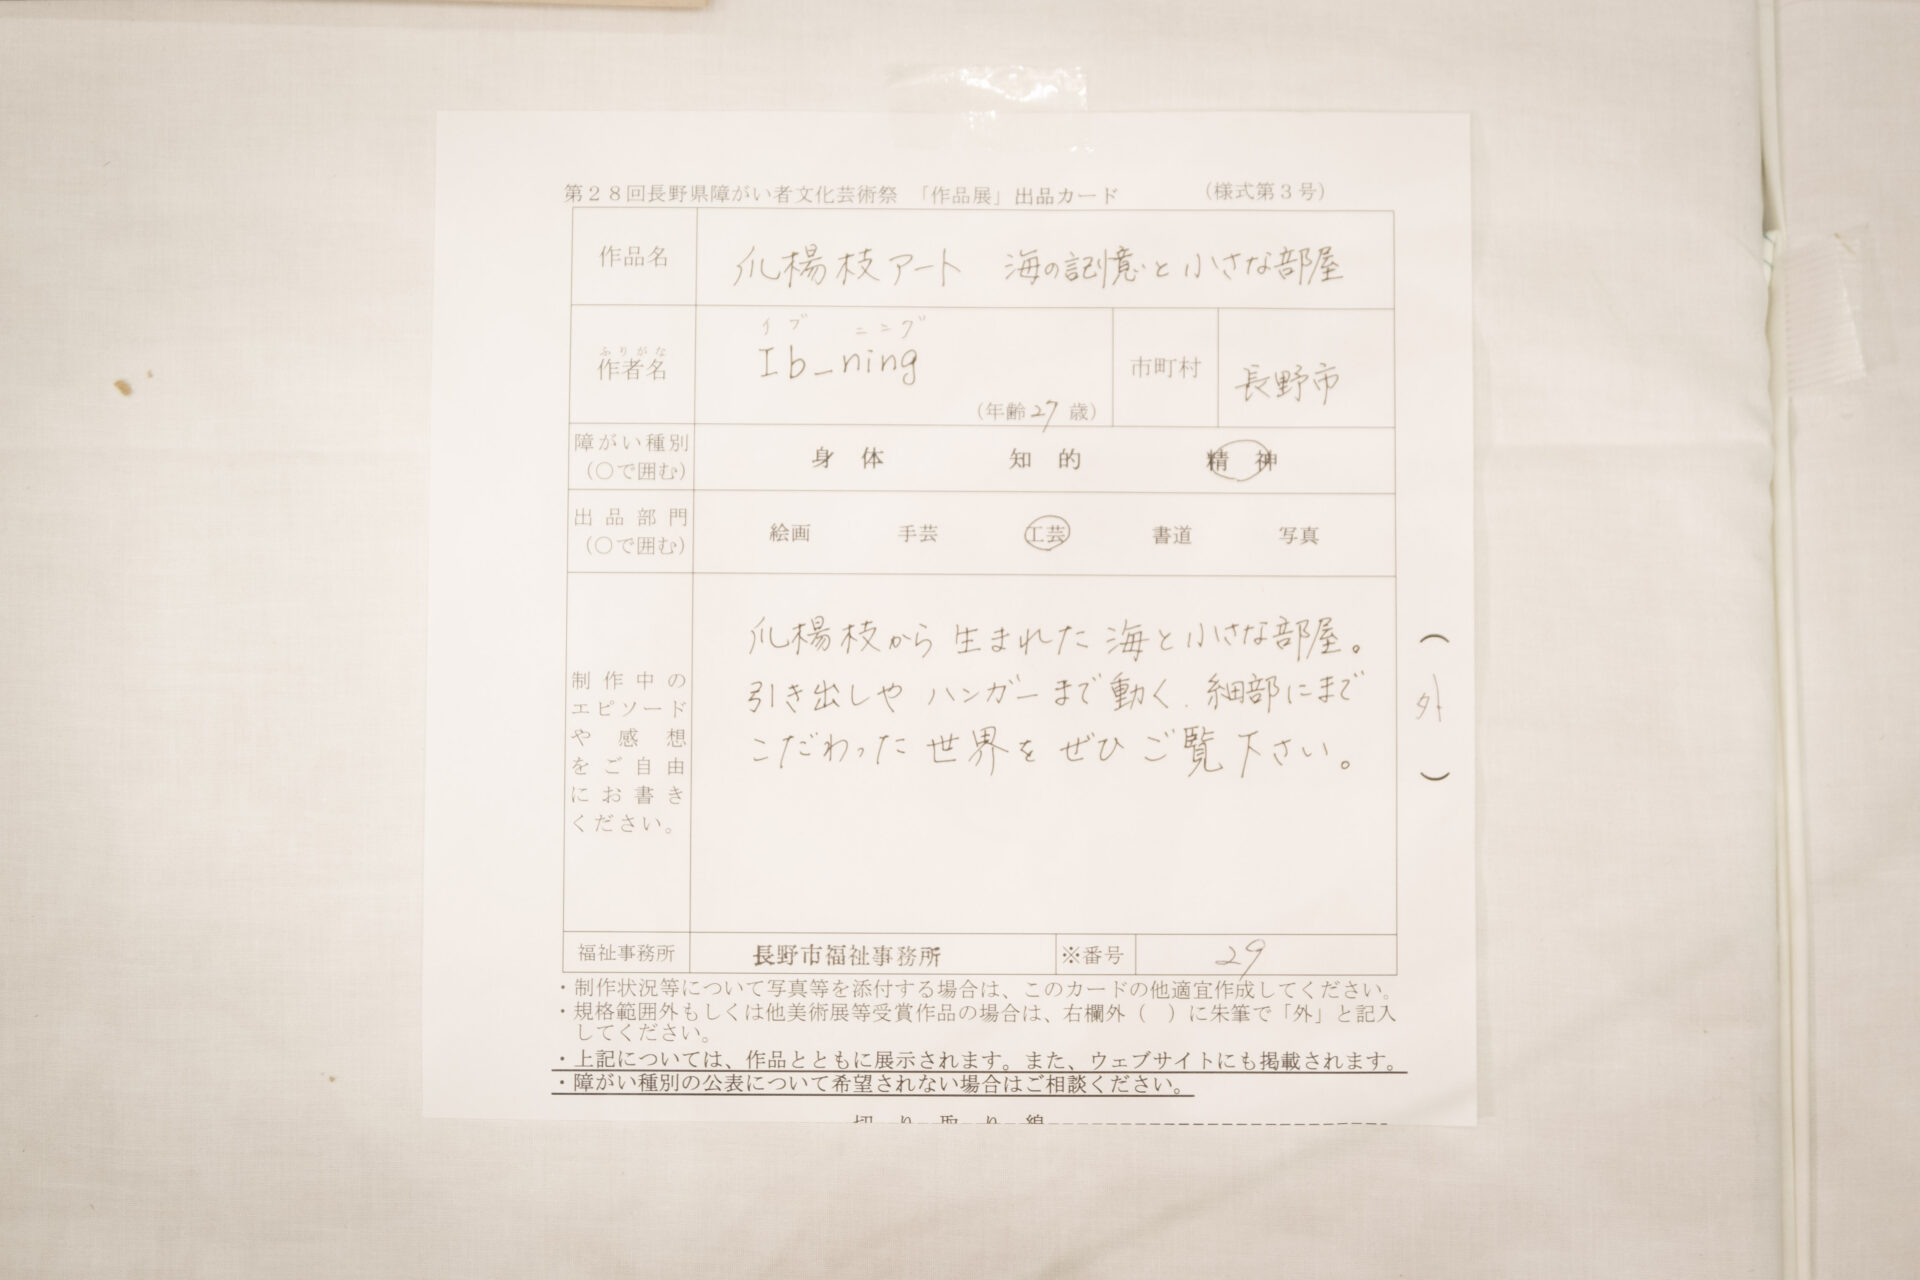 第28回長野県障がい者文化芸術祭 「作品展」出品カード (様式第3号)
作品名 爪楊枝アート 海の記憶と小さな部屋
イブ ニング
ふりがな
作者名 Ib_ning (年齢27歳) 市町村 長野市
障がい種別
(○で囲む) 身体 知的 精神
出品部門
(○で囲む) 絵画 手芸 工芸 書道 写真
制作中の
エピソード
や感想
をご自由
にお書き
ください。
爪楊枝から生まれた海と小さな部屋。
引き出しやハンガーまで動く、細部にまで
こだわった世界をぜひご覧下さい。
(外)
福祉事務所 長野市福祉事務所 ※番号 29
・制作状況等について写真等を添付する場合は、このカードの他適宜作成してください。
・規格範囲外もしくは他美術展等受賞作品の場合は、右欄外( )に朱筆で「外」と記入
してください。
・上記については、作品とともに展示されます。また、ウェブサイトにも掲載されます。
・障がい種別の公表について希望されない場合はご相談ください。
切り取り線